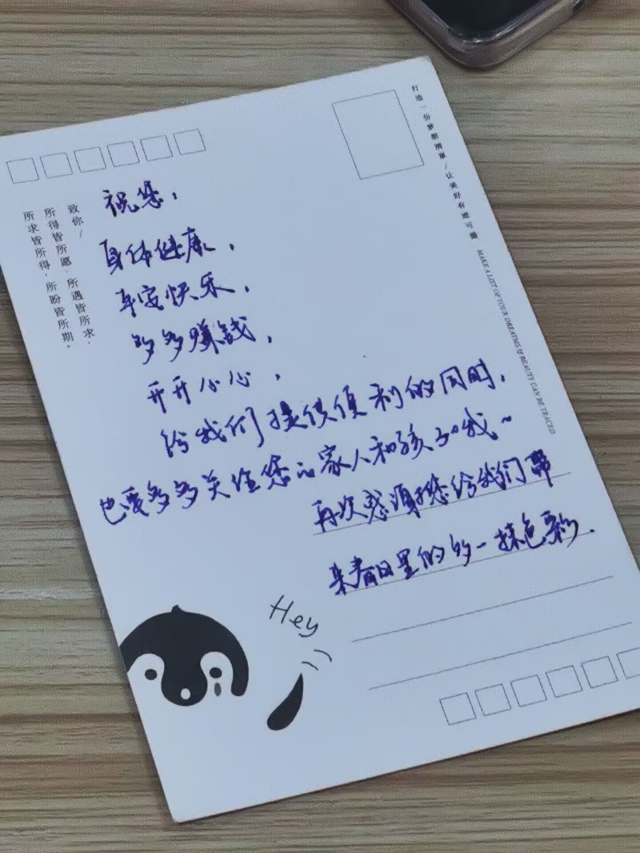 打造一份梦想清单/让美好有迹可循
MAKE A LIST OF YOUR DREAMS & BEAUTY CAN BE TRACED
致你/
所得皆所愿·所遇皆所求·
所求皆所得·所盼皆所期。
祝您，
身体健康，
平安快乐，
多多赚钱，
开开心心，
给我们提供便利的同时，
也要多多关注您的家人和孩子哦～
再次感谢您给我们带
来春日里的多一抹色彩.
Hey